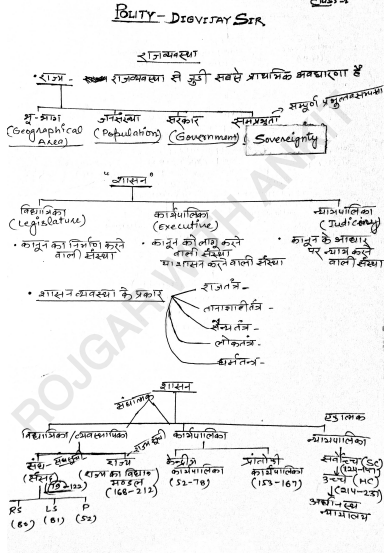 POLITY - DIGVIJAY SIR
राजव्यवस्था
• राज्य - राजव्यवस्था से जुड़ी सबसे प्राथमिक अवधारणा है
भू-भाग जनसंख्या सरकार सम्प्रभुता → सम्पूर्ण
(Geographical Area) (Population) (Government) Sovereignty
"शासन"
विधायिका कार्यपालिका न्यायपालिका
(Legislature) (Executive) (Judiciary)
• कानून का निर्माण करने वाली संस्था
• कानून को लागू करने वाली संस्था या शासन करने वाली संस्था
• कानून के आधार पर न्याय करने वाली संस्था
• शासन व्यवस्था के प्रकार
राजतंत्र -
तानाशाहीतंत्र -
सैन्यतंत्र -
लोकतंत्र -
धर्मतन्त्र -
शासन
संघात्मक एकात्मक
विधायिका/व्यवस्थापिका कार्यपालिका न्यायपालिका
संघ- राज्य केन्द्रीय प्रांतीय
(संसद) राज्य का विधान मण्डल कार्यपालिका कार्यपालिका
(79-122) (168-212) (52-78) (153-167)
सर्वोच्च (SC)
(124-147)
उच्च (HC)
(214-231)
अधीनस्थ न्यायालय
RS LS P
(80) (81) (52)
ROJGAR WITH ANKIT